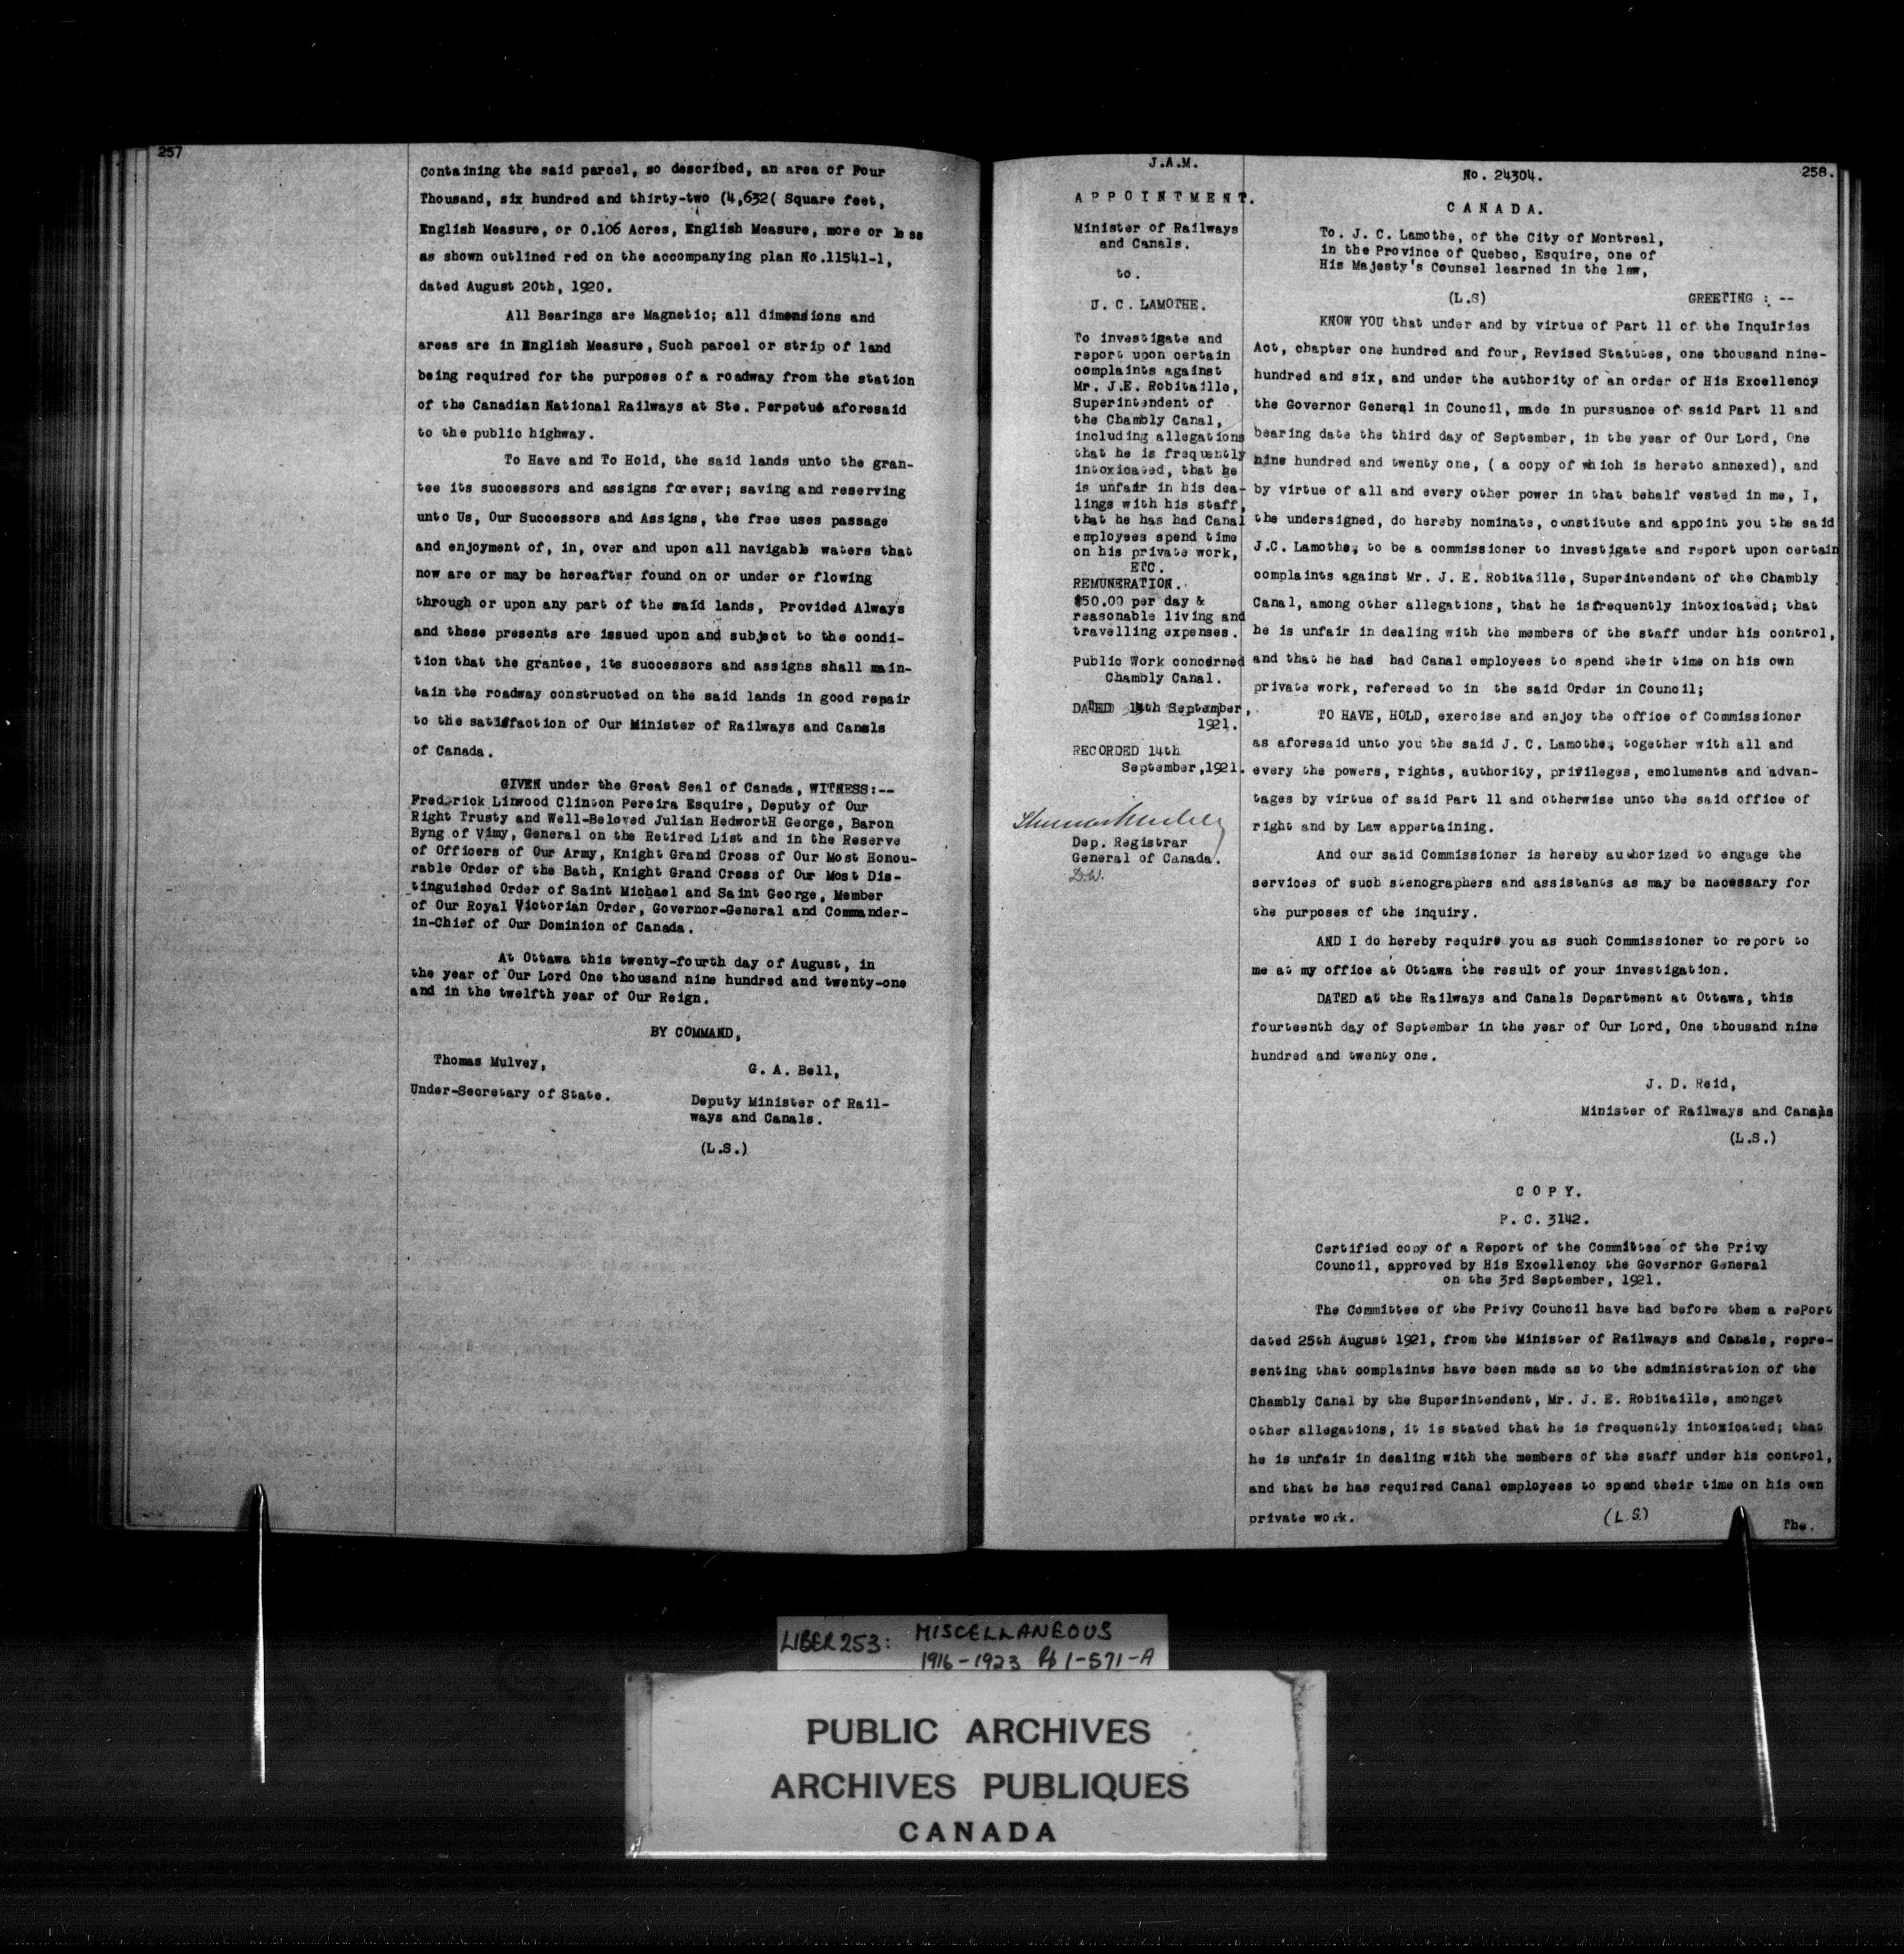 257
Containing the said parcel, so described, an area of Four
Thousand, six hundred and thirty-two (4,632( Square feet,
English Measure, or 0.106 Acres, English Measure, more or less
as shown outlined red on the accompanying plan No.11541-1,
dated August 20th, 1920.
All Bearings are Magnetic; all dimensions and
areas are in English Measure, Such parcel or strip of land
being required for the purposes of a roadway from the station
of the Canadian National Railways at Ste. Perpetue aforesaid
to the public highway.
To Have and To Hold, the said lands unto the gran-
tee its successors and assigns forever; saving and reserving
unto Us, Our Successors and Assigns, the free uses passage
and enjoyment of, in, over and upon all navigable waters that
now are or may be hereafter found on or under or flowing
through or upon any part of the said lands, Provided Always
and these presents are issued upon and subject to the condi-
tion that the grantee, its successors and assigns shall main-
tain the roadway constructed on the said lands in good repair
to the satisfaction of Our Minister of Railways and Canals
of Canada.
GIVEN under the Great Seal of Canada, WITNESS:--
Frederick Linwood Clinton Pereira Esquire, Deputy of Our
Right Trusty and Well-Beloved Julian HedwortH George, Baron
Byng of Vimy, General on the Retired List and in the Reserve
of Officers of Our Army, Knight Grand Cross of Our Most Honou-
rable Order of the Bath, Knight Grand Cross of Our Most Dis-
tinguished Order of Saint Michael and Saint George, Member
of Our Royal Victorian Order, Governor-General and Commander-
in-Chief of Our Dominion of Canada.
At Ottawa this twenty-fourth day of August, in
the year of Our Lord One thousand nine hundred and twenty-one
and in the twelfth year of Our Reign.
BY COMMAND,
Thomas Mulvey,
Under-Secretary of State.
G. A. Bell,
Deputy Minister of Rail-
ways and Canals.
(L.S.)
J.A.M.
APPOINTMENT.
Minister of Railways
and Canals.
to.
J. C. LAMOTHE.
To investigate and
report upon certain
complaints against
Mr. J.E. Robitaille,
Superintendent of
the Chambly Canal,
including allegations
that he is frequently
intoxicated, that he
is unfair in his dea-
lings with his staff,
that he has had Canal
employees spend time
on his private work,
ETC.
REMUNERATION.
$50.00 per day &
reasonable living and
travelling expenses.
Public Work concerned
Chambly Canal.
DATED 14th September,
1921.
RECORDED 14th
September,1921.
Dep. Registrar
General of Canada.
D.W.
No. 24304.
258.
CANADA.
To. J. C. Lamothe, of the City of Montreal,
in the Province of Quebec, Esquire, one of
His Majesty's Counsel learned in the law,
(L.S) GREETING : --
KNOW YOU that under and by virtue of Part 11 of the Inquiries
Act, chapter one hundred and four, Revised Statutes, one thousand nine-
hundred and six, and under the authority of an order of His Excellency
the Governor General in Council, made in pursuance of said Part 11 and
bearing date the third day of September, in the year of Our Lord, One
nine hundred and twenty one, ( a copy of which is hereto annexed), and
by virtue of all and every other power in that behalf vested in me, I,
the undersigned, do hereby nominate, constitute and appoint you the said
J.C. Lamothe, to be a commissioner to investigate and report upon certain
complaints against Mr. J. E. Robitaille, Superintendent of the Chambly
Canal, among other allegations, that he isfrequently intoxicated; that
he is unfair in dealing with the members of the staff under his control,
and that he had had Canal employees to spend their time on his own
private work, refereed to in the said Order in Council;
TO HAVE, HOLD, exercise and enjoy the office of Commissioner
as aforesaid unto you the said J. C. Lamothe, together with all and
every the powers, rights, authority, privileges, emoluments and advan-
tages by virtue of said Part 11 and otherwise unto the said office of
right and by Law appertaining.
And our said Commissioner is hereby authorized to engage the
services of such stenographers and assistants as may be necessary for
the purposes of the inquiry.
AND I do hereby require you as such Commissioner to report to
me at my office at Ottawa the result of your investigation.
DATED at the Railways and Canals Department at Ottawa, this
fourteenth day of September in the year of Our Lord, One thousand nine
hundred and twenty one.
J. D. Reid,
Minister of Railways and Canals
(L.S.)
COPY.
P. C. 3142.
Certified copy of a Report of the Committee of the Privy
Council, approved by His Excellency the Governor General
on the 3rd September, 1921.
The Committee of the Privy Council have had before them a rePort
dated 25th August 1921, from the Minister of Railways and Canals, repre-
senting that complaints have been made as to the administration of the
Chambly Canal by the Superintendent, Mr. J. E. Robitaille, amongst
other allegations, it is stated that he is frequently intoxicated; that
he is unfair in dealing with the members of the staff under his control,
and that he has required Canal employees to spend their time on his own
private work. (L.S.)
The.
LIBER 253: MISCELLANEOUS
1916-1923 Pp 1-571-A
PUBLIC ARCHIVES
ARCHIVES PUBLIQUES
CANADA